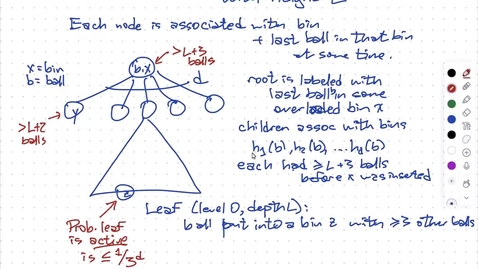 Each node is associated with bin
+ last ball in that bin
at some time.
>L+3
balls
x = bin
b = ball
b,x
d
y
>L+2
balls
root is labeled with
last ball b in some
overloaded bin x
children assoc with bins
h₁(b), h₂(b), ... h_d(b)
each had ≥ L+3 balls
before x was inserted
z
Leaf (level 0, depth L):
ball put into a bin z with ≥3 other balls
Prob. leaf
is active
is ≤ 1/3d